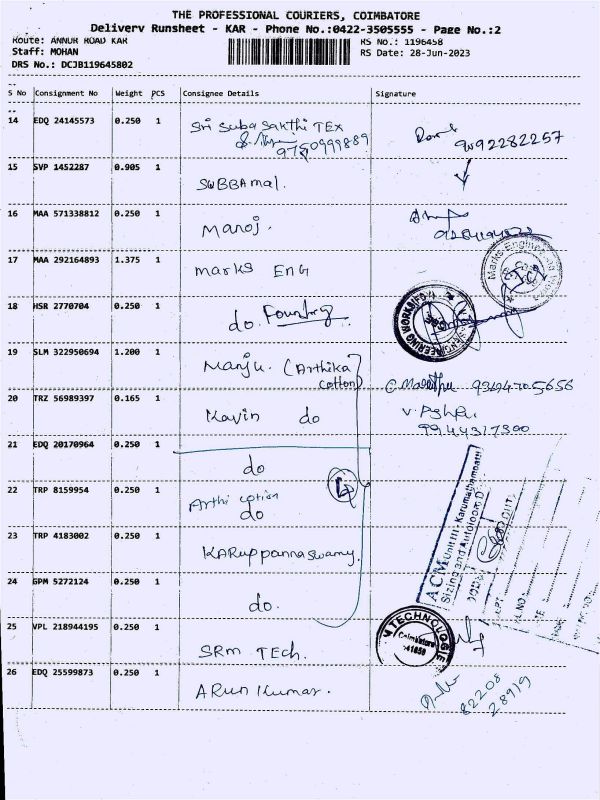 THE PROFESSIONAL COURIERS, COIMBATORE
Delivery Runsheet - KAR - Phone No.:0422-3505555 - Page No.:2
Route: ANNUR ROAD KAR
RS No.: 1196458
Staff: MOHAN
RS Date: 28-Jun-2023
DRS No.: DCJB119645802
S No Consignment No Weight PCS Consignee Details Signature
14 EDQ 24145573 0.250 1 Sri Suba Sakthi TEX
9750999889 9092282257
15 SVP 1452287 0.905 1 SUBBAmal.
16 MAA 571338812 0.250 1 Manoj.
17 MAA 292164893 1.375 1 Marks ENG
Marks Engineering
18 HSR 2770704 0.250 1 do. Foundry
ENGINEERING WORKS
19 SLM 322950694 1.200 1 Manju. (Arthika
cotton)
20 TRZ 56989397 0.165 1 Kavin do
9944317300
21 EDQ 20170964 0.250 1 do
22 TRP 8159954 0.250 1 Arthi cotton
do
ACM Unit III - Karumathampatti
Sizing and Autoloom
23 TRP 4183002 0.250 1 KARuppannaswamy.
24 GPM 5272124 0.250 1 do.
25 VPL 218944195 0.250 1 SRM TEch.
M TECHNOLOGIE
Coimbatore
26 EDQ 25599873 0.250 1 ARun Kumar.
82208
28919